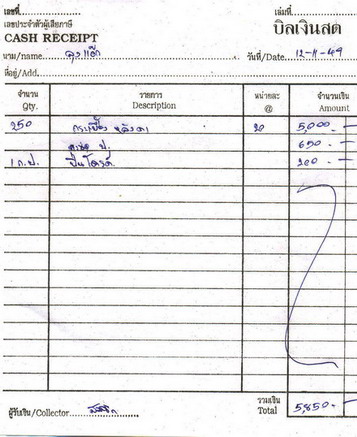 เลขที่
เล่มที่
เลขประจำตัวผู้เสียภาษี
CASH RECEIPT
บิลเงินสด
นาม/name
วันที่/Date 12-11-49
ที่อยู่/Add.
จำนวน รายการ หน่วยละ จำนวนเงิน
Qty. Description @ Amount
250 กระเบื้อง หลังคา 20 5,000 -
650 -
200 -
ผู้รับเงิน/Collector
รวมเงิน
Total 5,850 -